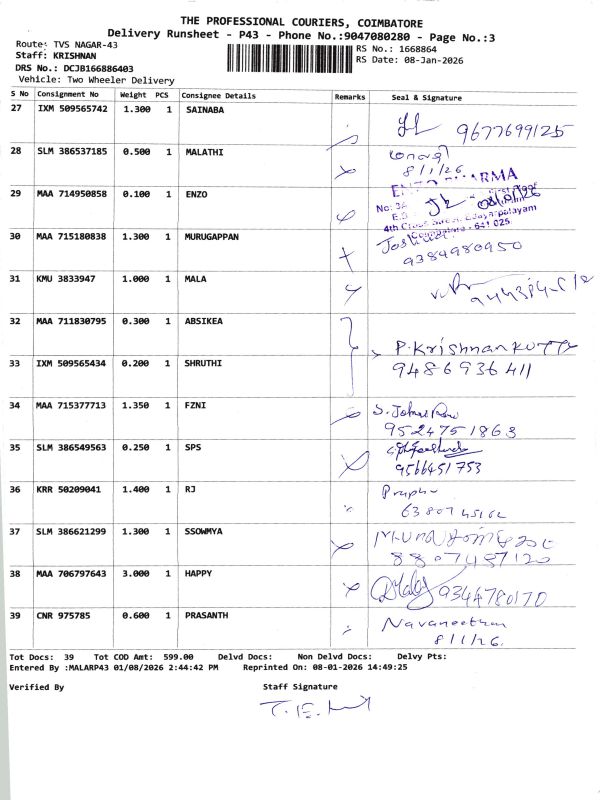 THE PROFESSIONAL COURIERS, COIMBATORE
Delivery Runsheet - P43 - Phone No.:9047080280 - Page No.:3
Route: TVS NAGAR-43
Staff: KRISHNAN
DRS No.: DCJB166886403
Vehicle: Two Wheeler Delivery
RS No.: 1668864
RS Date: 08-Jan-2026
S No Consignment No Weight PCS Consignee Details Remarks Seal & Signature
27 IXM 509565742 1.300 1 SAINABA
9677699125
28 SLM 386537185 0.500 1 MALATHI
மாலதி
8/1/26
29 MAA 714950858 0.100 1 ENZO
08/01/26
4th Cross Street, Edayarpalayam
Coimbatore - 641 025
30 MAA 715180838 1.300 1 MURUGAPPAN
9384980950
31 KMU 3833947 1.000 1 MALA
32 MAA 711830795 0.300 1 ABSIKEA
P.Krishnan KUTTY
33 IXM 509565434 0.200 1 SHRUTHI
9486936411
34 MAA 715377713 1.350 1 FZNI
9524751863
35 SLM 386549563 0.250 1 SPS
9566451753
36 KRR 50209041 1.400 1 RJ
37 SLM 386621299 1.300 1 SSOWMYA
8807487120
38 MAA 706797643 3.000 1 HAPPY
9344780170
39 CNR 975785 0.600 1 PRASANTH
Navaneethan
8/1/26.
Tot Docs: 39 Tot COD Amt: 599.00 Delvd Docs: Non Delvd Docs: Delvy Pts:
Entered By :MALARP43 01/08/2026 2:44:42 PM Reprinted On: 08-01-2026 14:49:25
Verified By Staff Signature